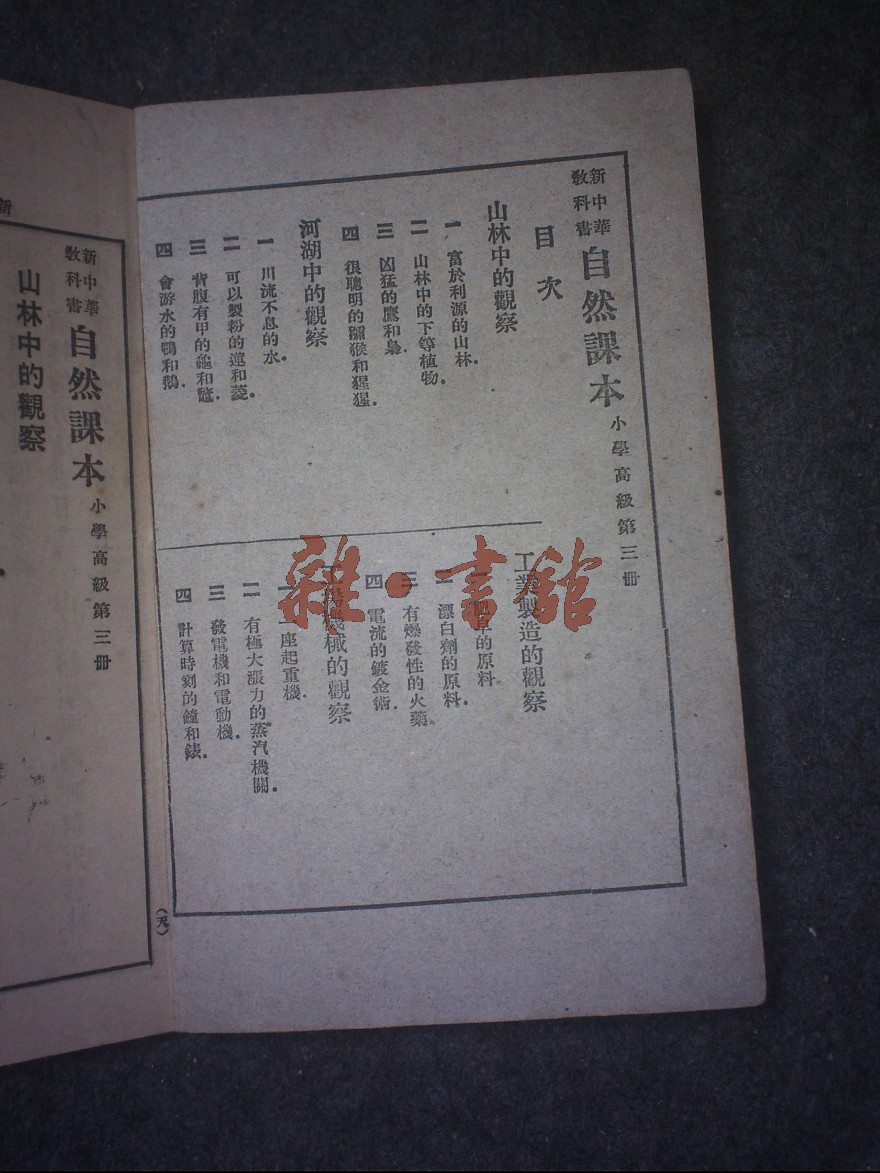 新中華教科書 自然課本 小學高級第三冊
目次
山林中的觀察
一 富於利源的山林.
二 山林中的下等植物.
三 凶猛的鷹和梟.
四 很聰明的獼猴和猩猩.
河湖中的觀察
一 川流不息的水.
二 可以製粉的蓮和菱.
三 背腹有甲的龜和鼈.
四 會游水的鴨和鵝.
工業製造的觀察
的原料.
漂白劑的原料.
三 有爆發性的火藥.
四 電流的鍍金術.
機械的觀察
一 一座起重機.
二 有極大漲力的蒸汽機關.
三 發電機和電動機.
四 計算時刻的鐘和錶.
新
新中華教科書 自然課本 小學高級第三冊
山林中的觀察
雜·書館